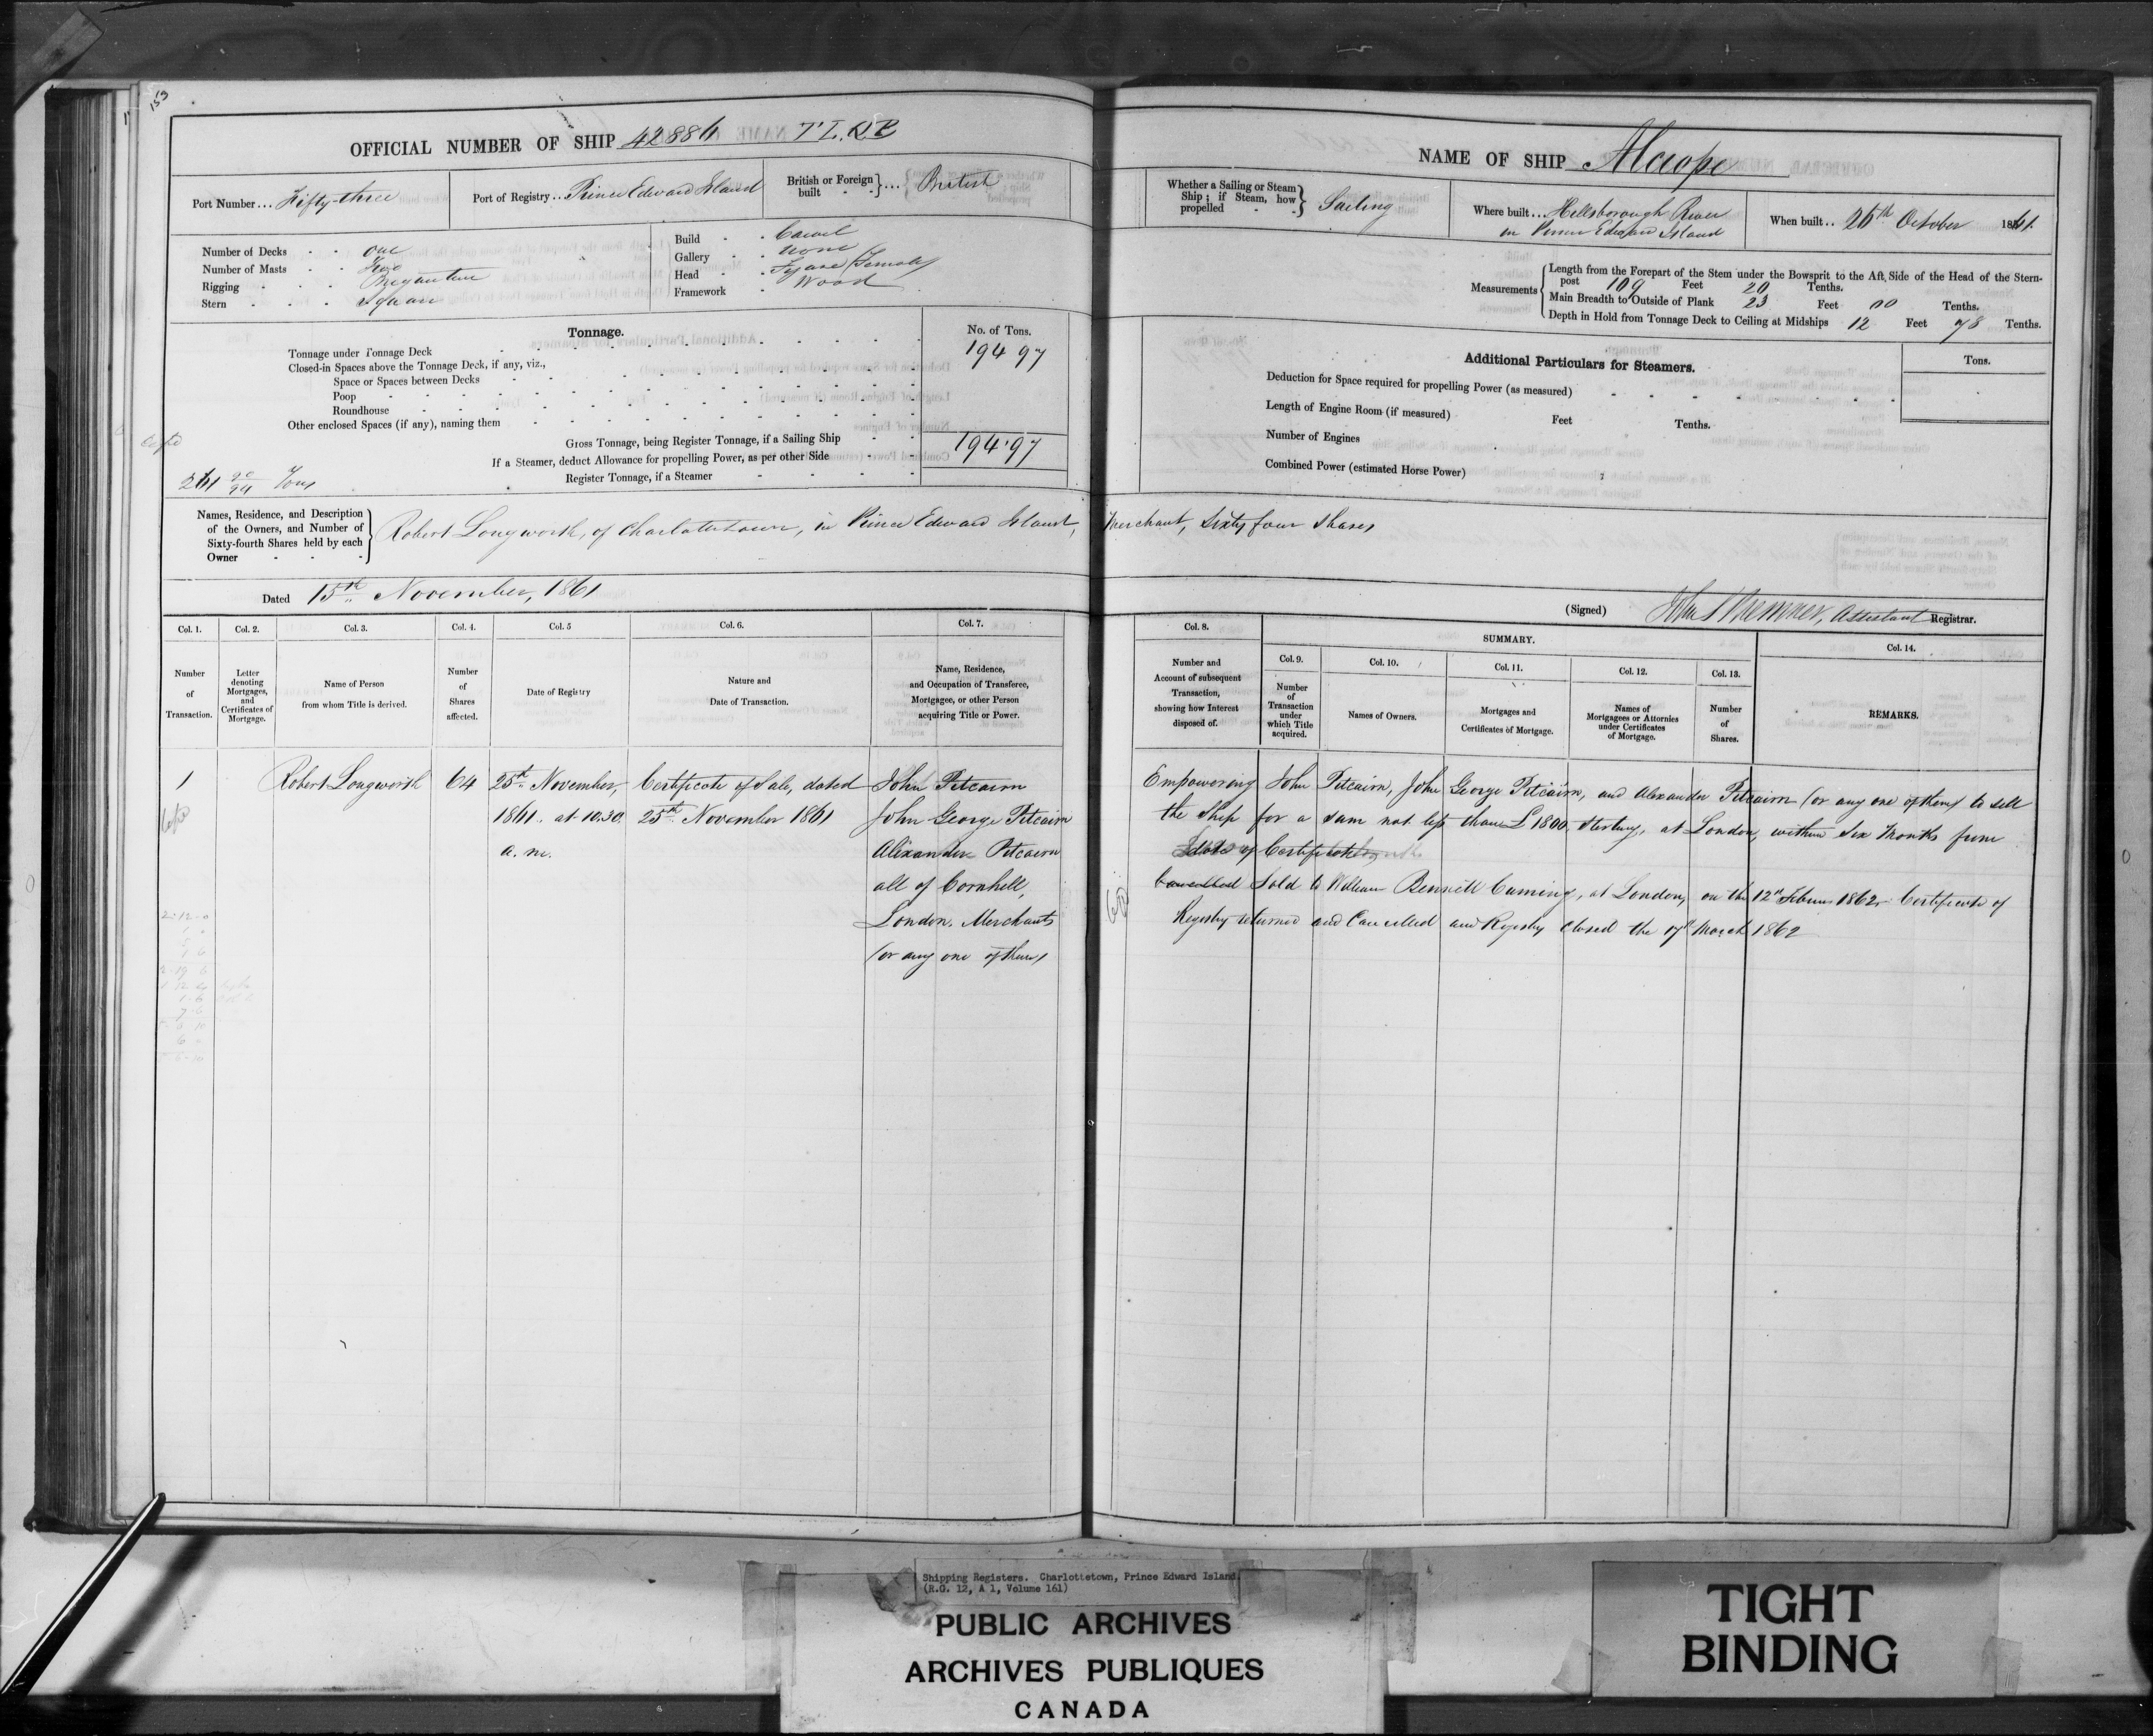 153
OFFICIAL NUMBER OF SHIP 42886 T L. Q B
Port Number... Fifty-three
Port of Registry.. Prince Edward Island
British or Foreign built - - }... British
Number of Decks - - one
Number of Masts - - Two
Rigging - - - Brigantine
Stern - - - Square
Build - - Carvel
Gallery - - None
Head - - Figure (Female)
Framework - Wood
Tonnage.
No. of Tons.
Tonnage under Tonnage Deck 194 97
Closed-in Spaces above the Tonnage Deck, if any, viz.,
Space or Spaces between Decks
Poop
Roundhouse
Other enclosed Spaces (if any), naming them
Gross Tonnage, being Register Tonnage, if a Sailing Ship 194.97
If a Steamer, deduct Allowance for propelling Power, as per other Side
Register Tonnage, if a Steamer
261 90/94 Tons
Names, Residence, and Description
of the Owners, and Number of
Sixty-fourth Shares held by each
Owner
Robert Longworth, of Charlottetown, in Prince Edward Island, Merchant, Sixty four Shares
Dated 15th November, 1861
Col. 1.
Col. 2.
Col. 3.
Col. 4.
Col. 5
Col. 6.
Col. 7.
Number of Transaction.
Letter denoting Mortgages, and Certificates of Mortgage.
Name of Person from whom Title is derived.
Number of Shares affected.
Date of Registry
Nature and Date of Transaction.
Name, Residence, and Occupation of Transferee, Mortgagee, or other Person acquiring Title or Power.
1 Robert Longworth 64 25th November, Certificate of Sale, dated John Pitcairn
1861. at 10.30 25th November 1861 John George Pitcairn
a. m. Alexander Pitcairn
all of Cornhell,
London, Merchants
(or any one of them)
NAME OF SHIP Merope
Whether a Sailing or Steam Ship; if Steam, how propelled } Sailing
Where built... Hillsborough River
in Prince Edward Island
When built.. 26th October 1861.
Measurements
Length from the Forepart of the Stem under the Bowsprit to the Aft Side of the Head of the Stern-
post 109 Feet 20 Tenths.
Main Breadth to Outside of Plank 23 Feet 00 Tenths.
Depth in Hold from Tonnage Deck to Ceiling at Midships 12 Feet 78 Tenths.
Additional Particulars for Steamers.
Tons.
Deduction for Space required for propelling Power (as measured)
Length of Engine Room (if measured) Feet Tenths.
Number of Engines
Combined Power (estimated Horse Power)
(Signed) Assistant Registrar.
Col. 8.
SUMMARY.
Col. 9.
Col. 10.
Col. 11.
Col. 12.
Col. 13.
Col. 14.
Number and Account of subsequent Transaction, showing how Interest disposed of.
Number of Transaction under which Title acquired.
Names of Owners.
Mortgages and Certificates of Mortgage.
Names of Mortgagees or Attornies under Certificates of Mortgage.
Number of Shares.
REMARKS.
Empowering John Pitcairn, John George Pitcairn, and Alexander Pitcairn (or any one of them) to sell
the ship for a sum not less than £1800, sterling, at London, within six months from
date of Certificate
Cancelled Sold to William Bennett Cuming, at London, on the 12th Februy 1862. Certificate of
Registry returned and Cancelled and Registry closed the 17th March 1862
Shipping Registers. Charlottetown, Prince Edward Island.
(R.G. 12, A 1, Volume 161)
PUBLIC ARCHIVES
ARCHIVES PUBLIQUES
CANADA
TIGHT
BINDING